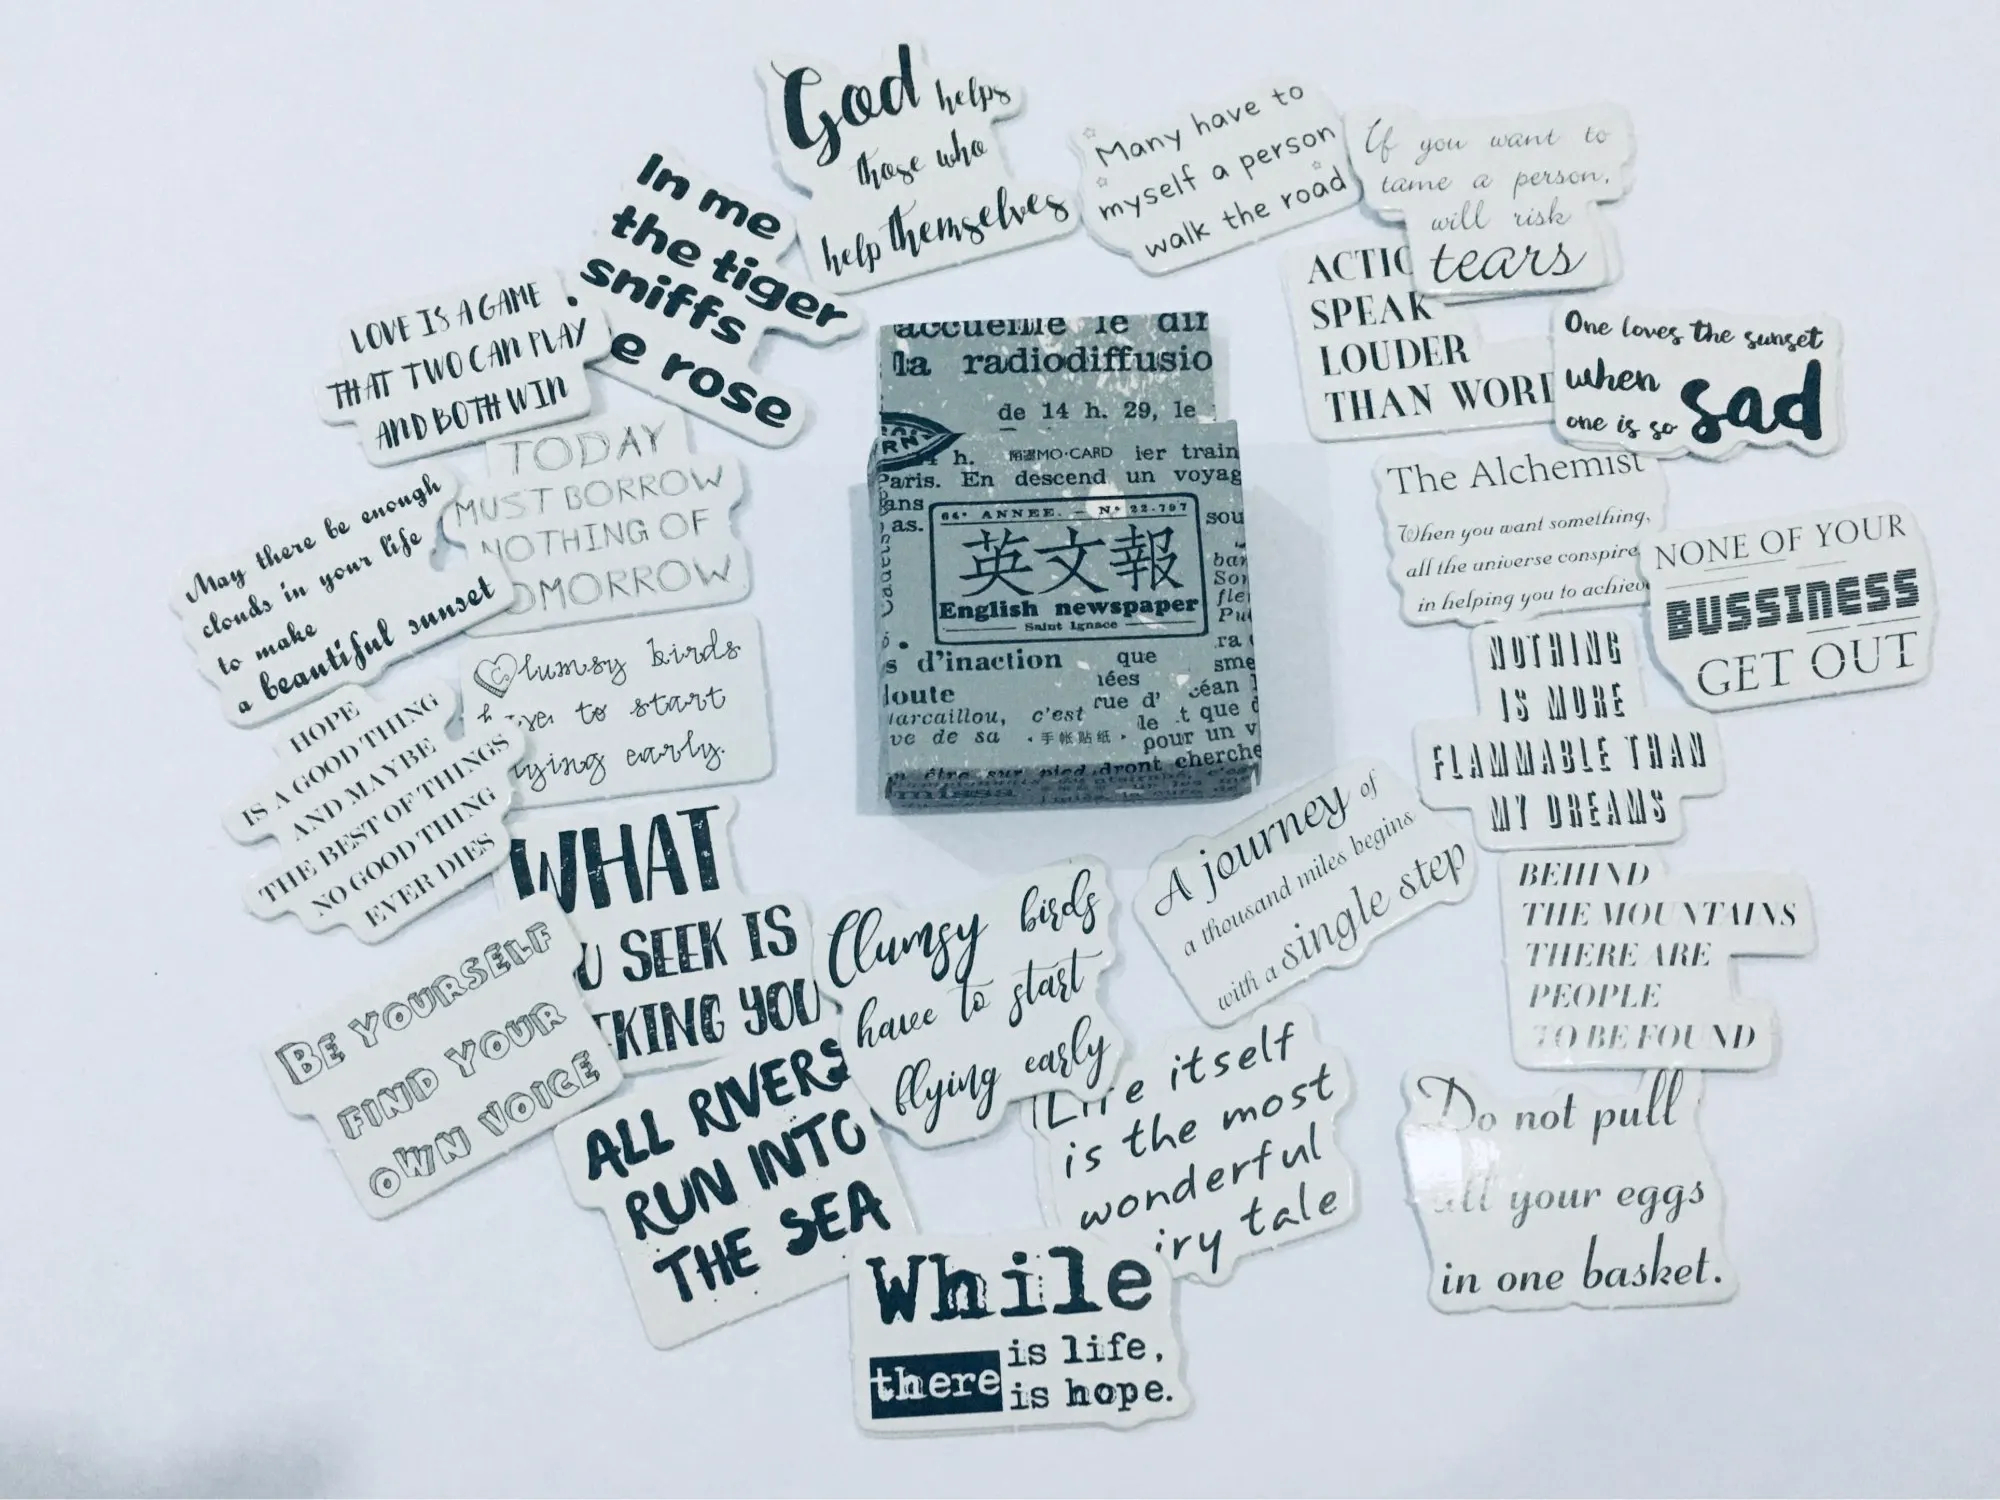 God helps
those who
help themselves
Many have to
myself a person
walk the road
If you want to
tame a person,
will risk
tears
In me
the tiger
sniffs
e rose
LOVE IS A GAME
THAT TWO CAN PLAY
AND BOTH WIN
ACTIO
SPEAK
LOUDER
THAN WORD
One loves the sunset
when
one is so sad
TODAY
MUST BORROW
NOTHING OF
OMORROW
May there be enough
clouds in your life
to make
a beautiful sunset
The Alchemist
When you want something,
all the universe conspire
in helping you to achiev
NONE OF YOUR
BUSSINESS
GET OUT
accueille le dir
la radiodiffusio
de 14 h. 29, le
RN
h. 陌墨MO·CARD ier train
Paris. En descend un voyag
ans
as.
64e ANNEE. — No 22-797
英文報
English newspaper
Saint Ignace
sou
bar
Sor
fle
Pu
ra
s d'inaction que sme
loute lées céan
arcaillou, c'est rue d' t que d
ve de sa ·手帐贴纸· le pour un v
n être sur pied dront cherche
missa
Clumsy birds
have to start
lying early.
HOPE
IS A GOOD THING
AND MAYBE
THE BEST OF THINGS
NO GOOD THING
EVER DIES
NOTHING
IS MORE
FLAMMABLE THAN
MY DREAMS
WHAT
U SEEK IS
KING YOU
A journey of
a thousand miles begins
with a single step
BEHIND
THE MOUNTAINS
THERE ARE
PEOPLE
TO BE FOUND
BE YOURSELF
FIND YOUR
OWN VOICE
Clumsy birds
have to start
flying early
ALL RIVERS
RUN INTO
THE SEA
Life itself
is the most
wonderful
iry tale
Do not pull
all your eggs
in one basket.
While
there is life,
is hope.